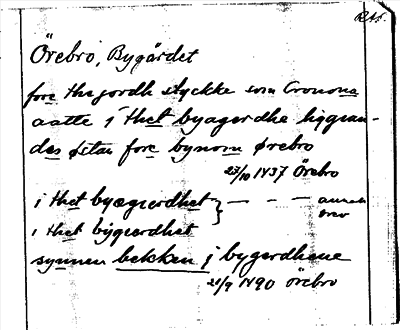 RAp.
Örebro, Bygärdet
fore the jordh stycke som Cronona
aatte i thet byagerdhe liggian-
des østan fore bynom ørebro
23/10 1437 Örebro
i thet byægierdhet } — - - annat
brev
i thet bygierdhet
synnen bekken j bygerdhene
21/9 1490 Örebro